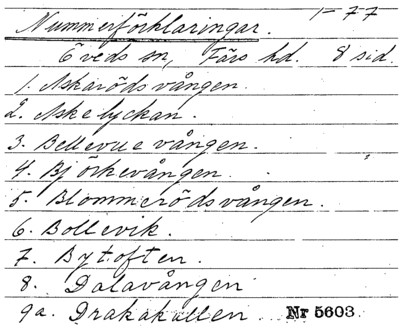 1-77
Nummerförklaringar.
Öveds sn, Färs hd. 8 sid.
1. Askarödsvången.
2. Askelyckan.
3. Bellevuevången.
4. Björkevången.
5. Blommerödsvången.
6. Bollevik.
7. Bytoften.
8. Dalavången
9a. Drakakällen Nr 5603.